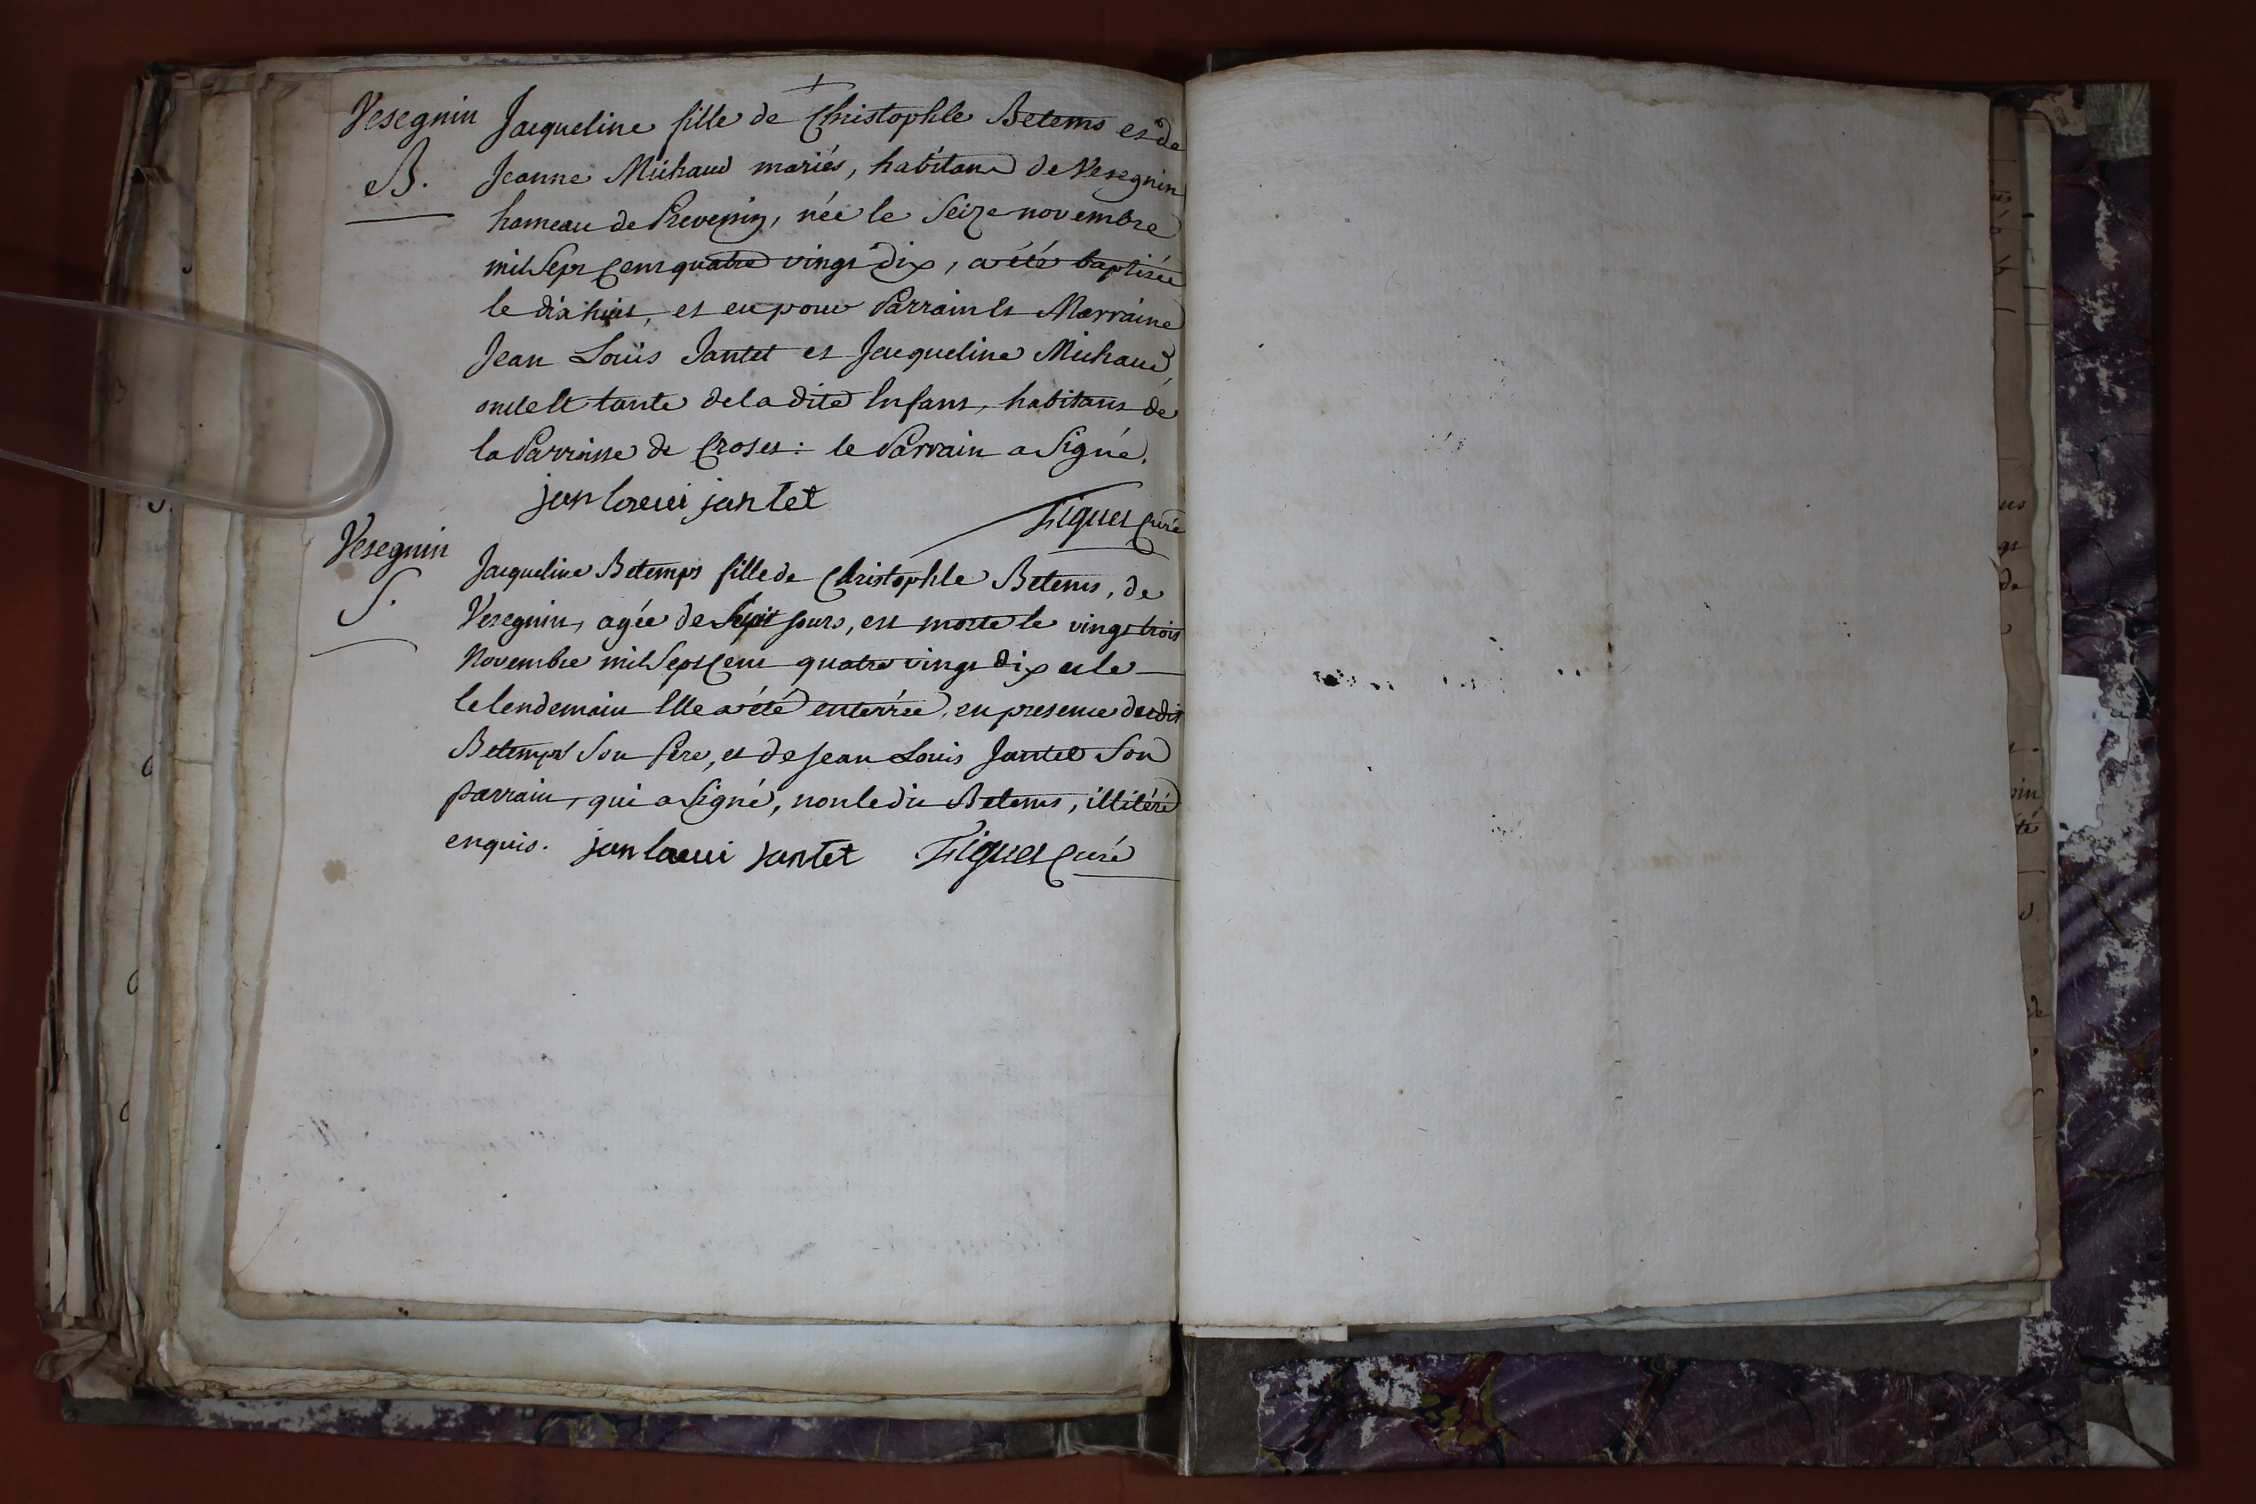 Vesegnin
B.
Jacqueline fille de Christophle Betems et de
Jeanne Michaud mariés, habitans de Vesegnin
hameau de Prevessin, née le Seize novembre
mil Sept Cent quatre vingt Dix, a été baptisée
le dix huit, et eu pour Parrain et Marraine
Jean Louis Jantet et Jacqueline Michaud,
oncle et tante de la dite Enfant, habitans de
la Parroisse de Croset : le Parrain a Signé.
jan loeui jantet
Curé
Vesegnin
S.
Jacqueline Betemps fille de Christophle Betems, de
Vesegnin, agée de jours, est morte le vingt trois
Novembre mil Sept Cent quatre vingt Dix et le
le lendemain Elle a été enterrée, en presence dudit
Betemps Son Pere, et de Jean Louis Jantet Son
Parrain, qui a Signé, non ledit Betems, illitéré
enquis. jan loeui jantet Curé